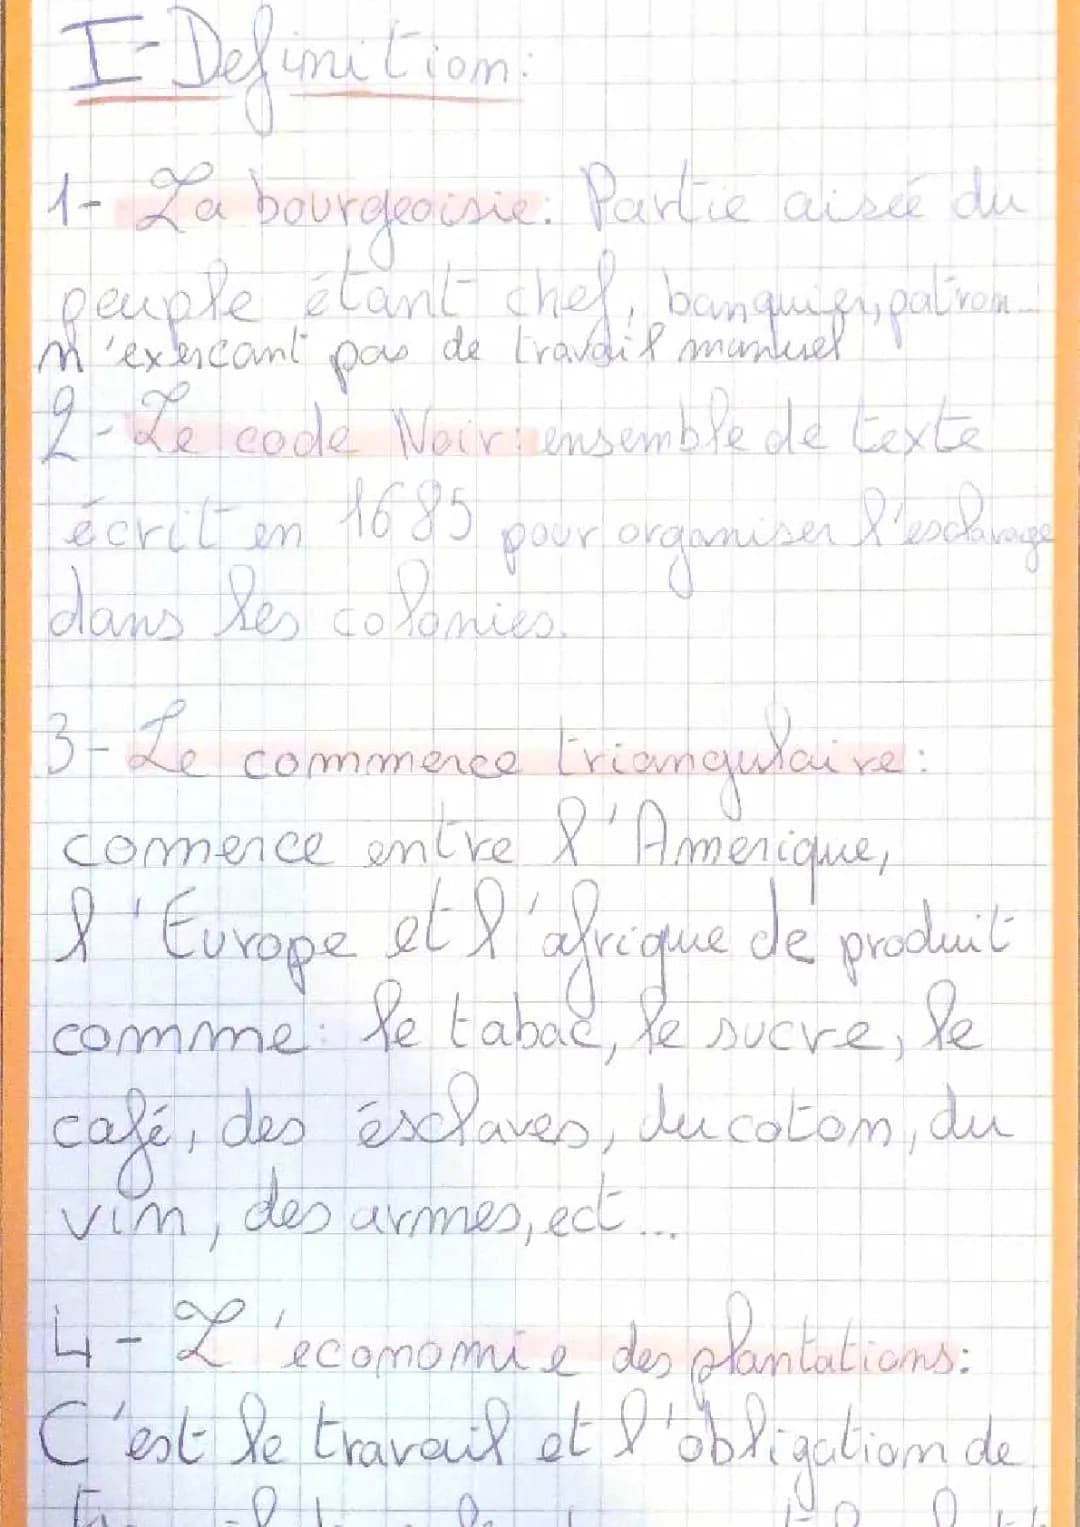 I-Definition:
1- La bourgeoisie: Partie aisée du
peuple étant chef, banquier, patron...
n'exercant pas de travail manuel
2-Le code Noir: ensemble de texte
écrit en 1685 pour organiser l'esclavage
dans les colonies.
3-Le commerce triangulaire:
commerce entre l'Amerique,
l'Europe et l'afrique de produit
comme: le tabac, le sucre, le
café, des ésclaves, du coton, du
vin, des armes, ect...
4-L'économie des plantations:
C'est le travail et l'obligation de